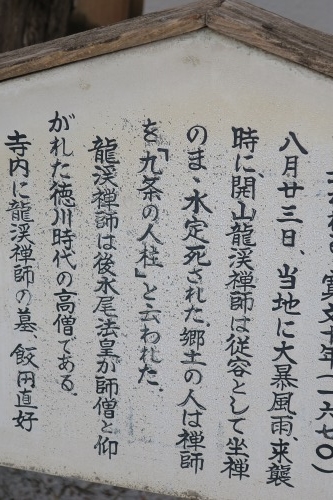 寛文十年(一六七〇)
八月廿三日、当地に大暴風雨、来襲
時に、開山龍渓禅師は従容として坐禅
のま、水定死された。郷土の人は禅師
を「九条の人柱」と云われた。
龍渓禅師は後水尾法皇が師僧と仰
がれた徳川時代の高僧である。
寺内に龍渓禅師の墓、飲用直好